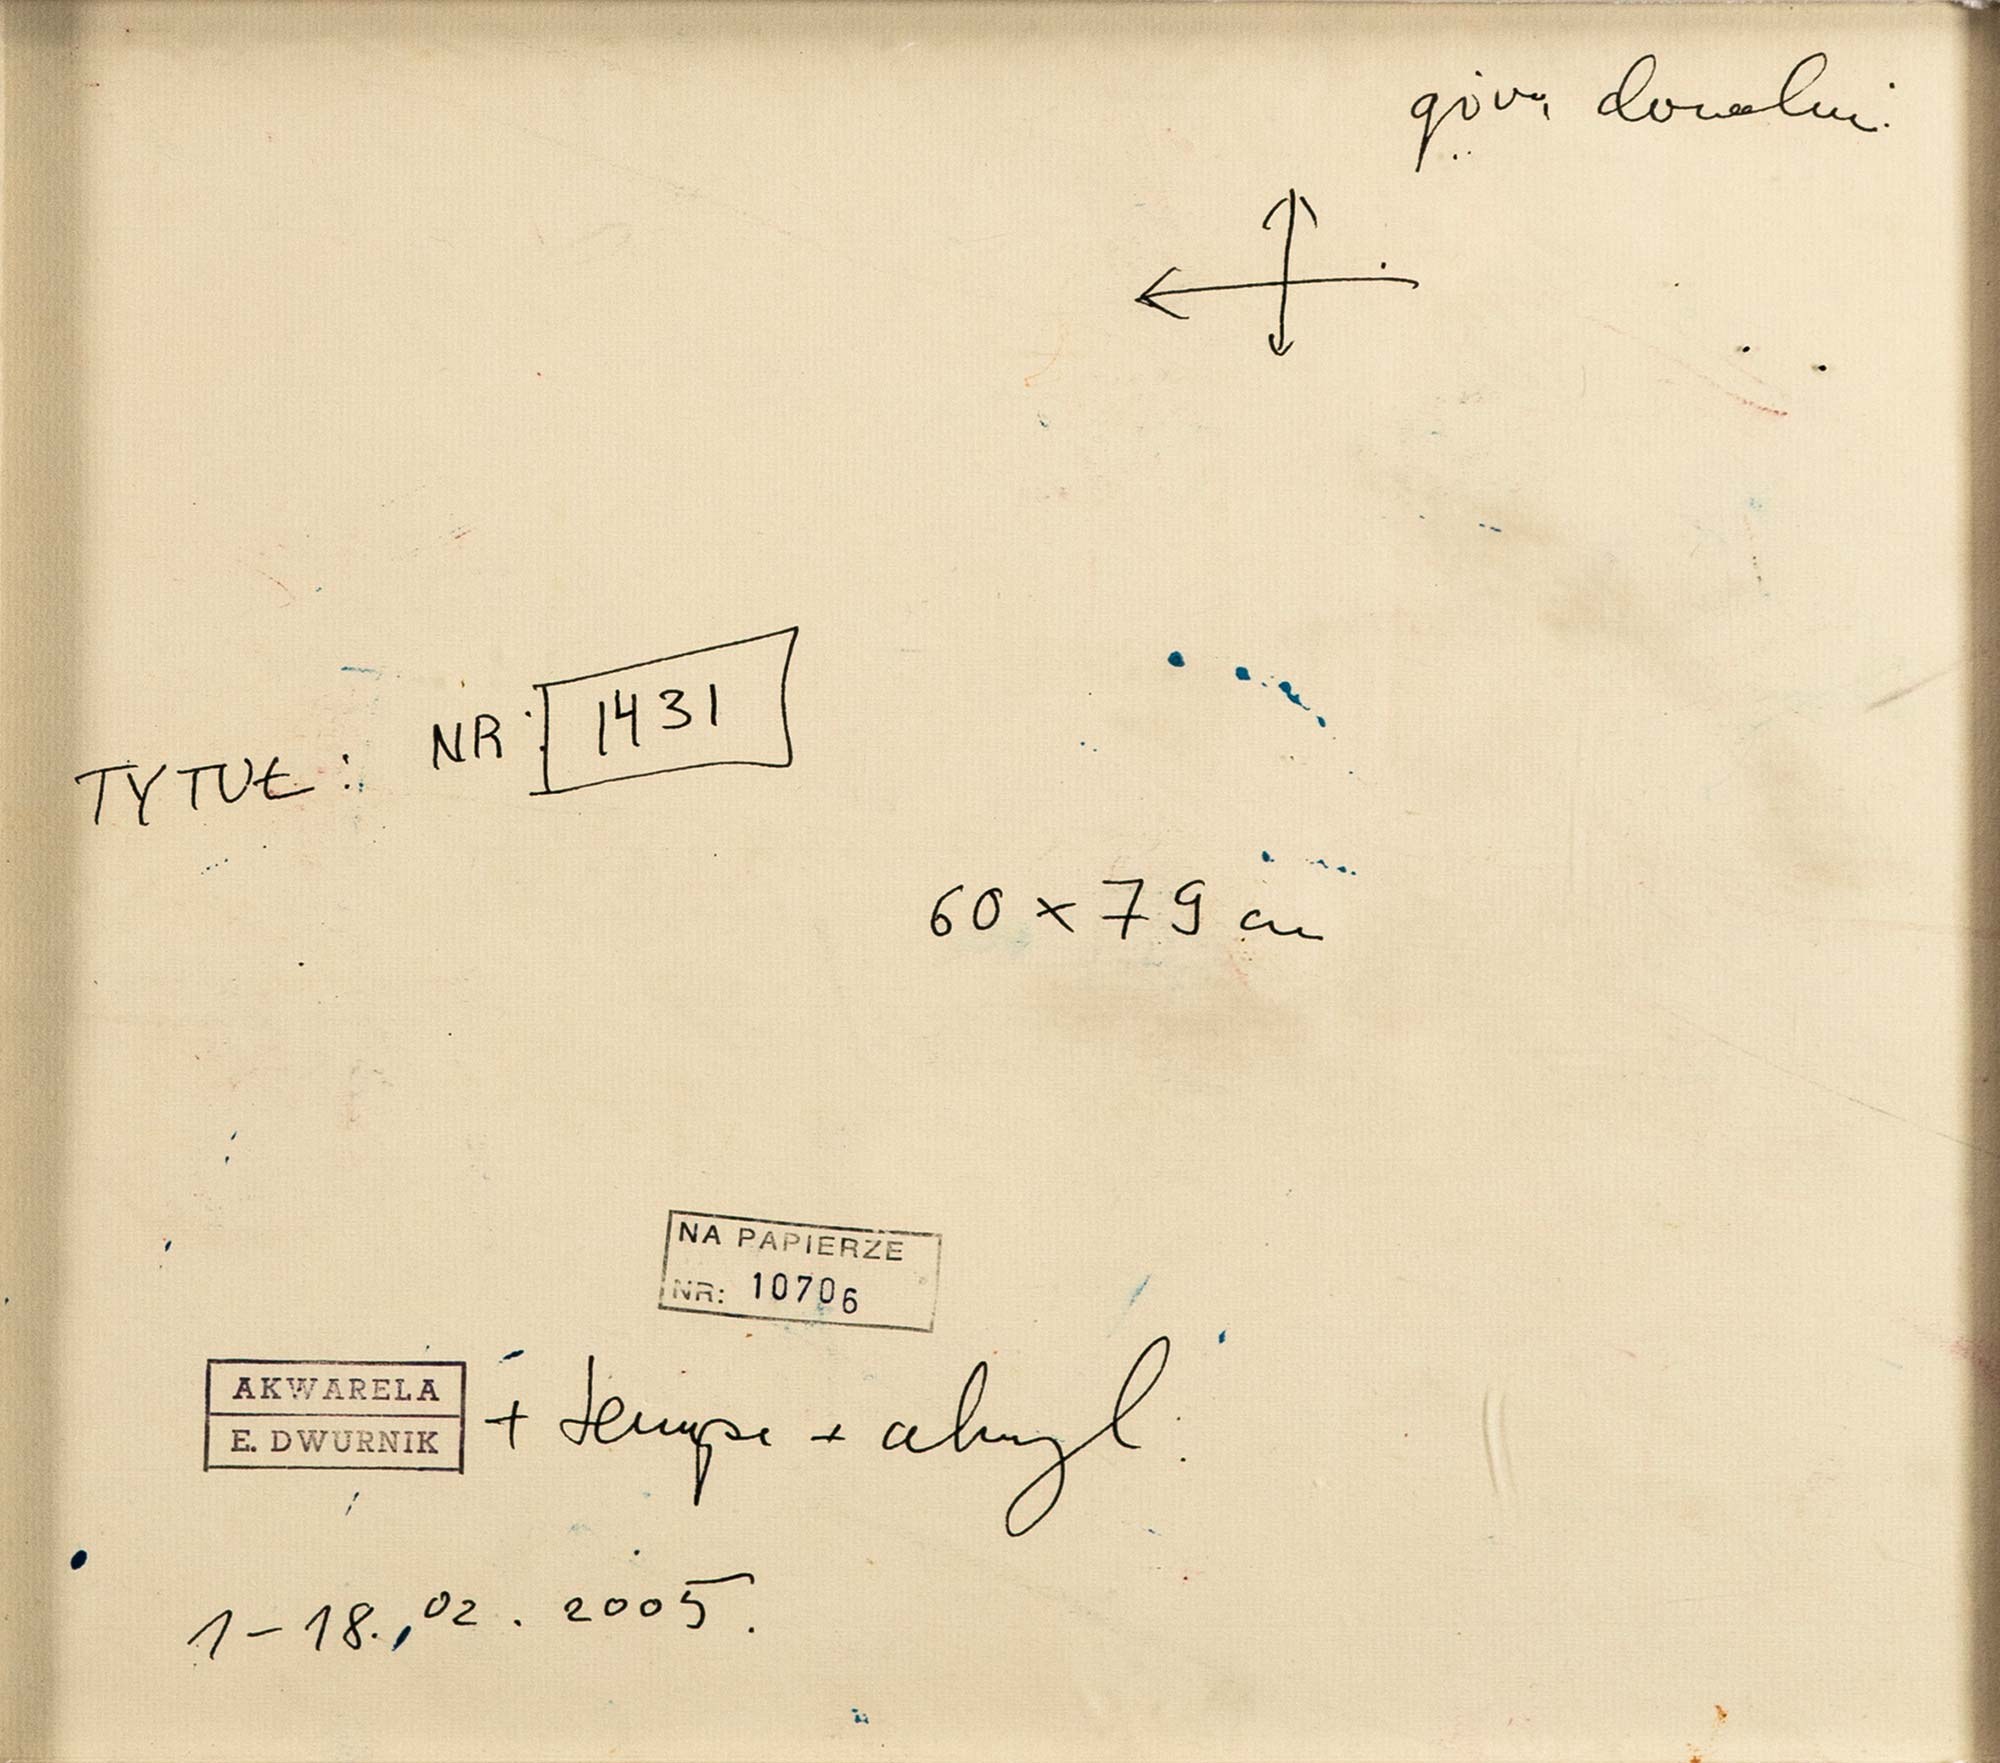 góra dowolna.
TYTUŁ: NR: 1431
60 x 79 cm
NA PAPIERZE
NR: 10706
AKWARELA
E. DWURNIK
+ tempera + akryl.
1-18.02.2005.